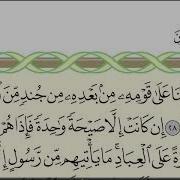 نَا عَلَىٰ قَوْمِهِۦ مِنۢ بَعْدِهِۦ مِن جُندٍ مِّنَ
٢٨ إِن كَانَتْ إِلَّا صَيْحَةً وَٰحِدَةً فَإِذَا هُمْ
ةً عَلَى ٱلْعِبَادِ ۚ مَا يَأْتِيهِم مِّن رَّسُولٍ إِ